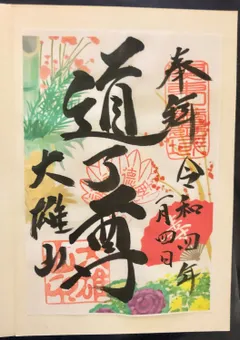 奉拜
令和四年
一月四日
道了尊
大雄山